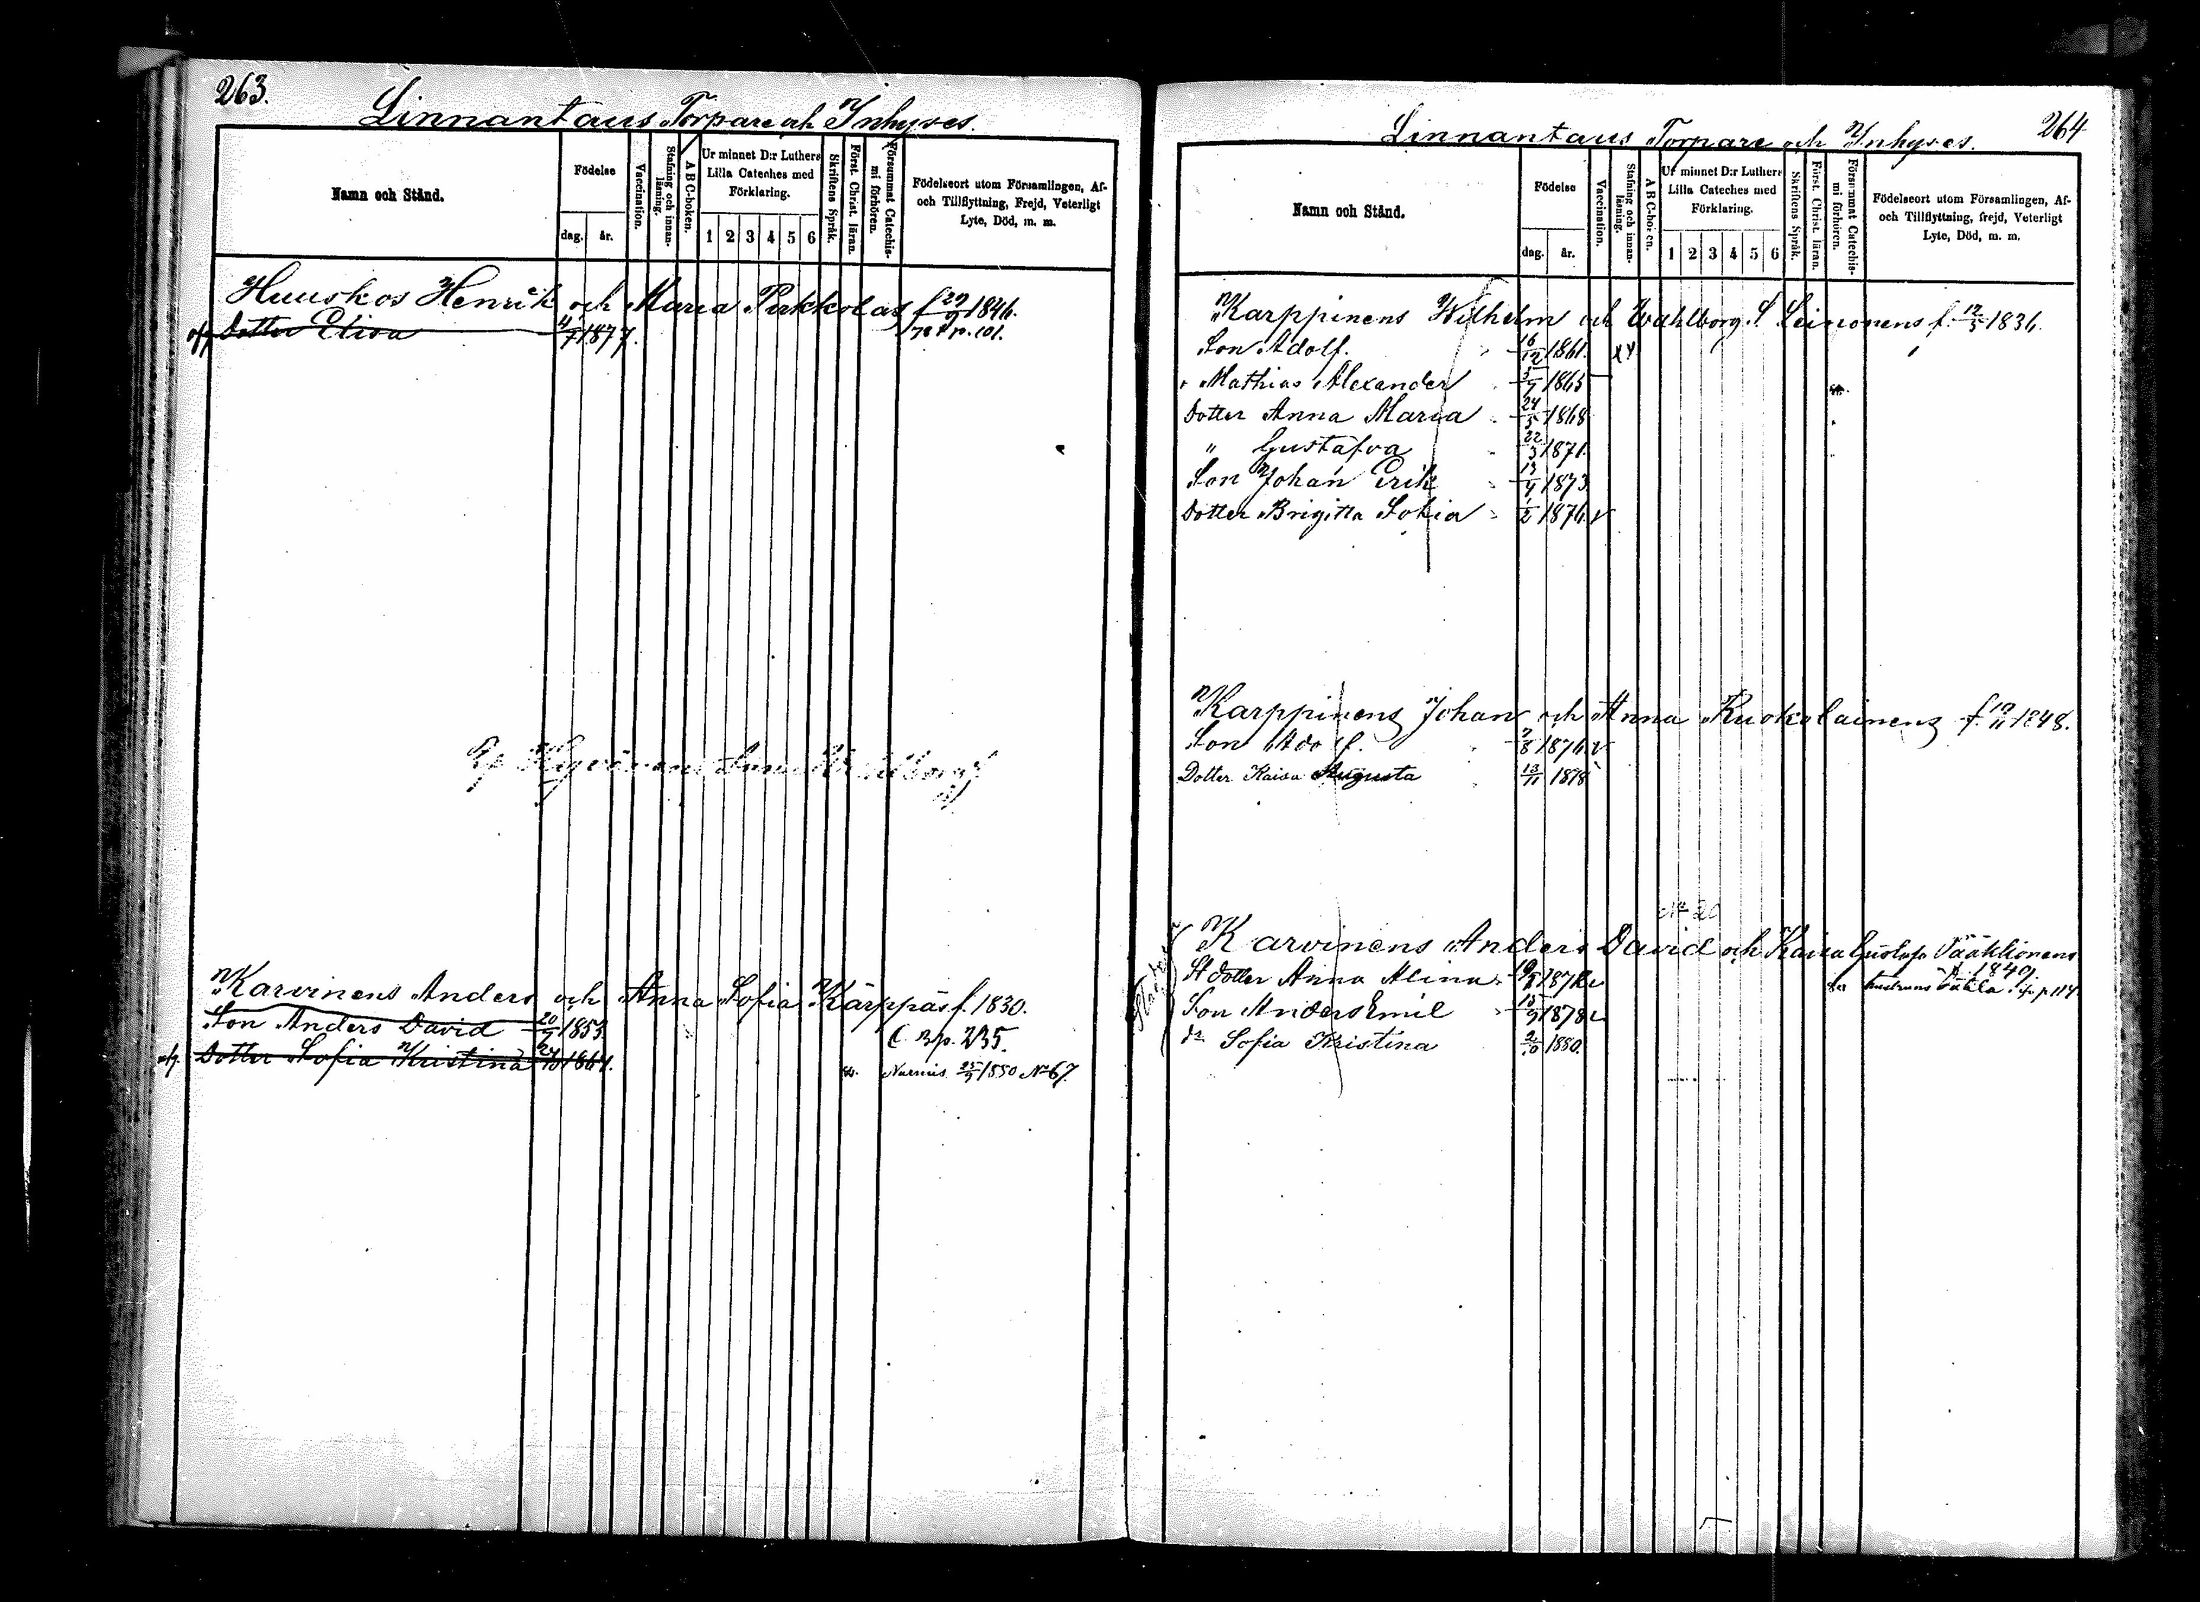 263.
Linnantaus Torpare och Inhyses.
Namn och Stånd.
Födelse
dag.
år.
Vaccination.
Stafning och innan-läsning.
A B C-boken.
Ur minnet D:r Luthers
Lilla Cateches med
Förklaring.
1 2 3 4 5 6
Skriftens Språk.
Först. Christ. läran.
Försummat Catechis-mi förhören.
Födelseort utom Församlingen, Af-
och Tillflyttning, Frejd, Veterligt
Lyte, Död, m. m.
Huuskos Henrik och Maria Pirkkolas f. 29/9 1846.
Dotter Elisa 11/7 1877. p. 101.
Karvinens Anders och Anna Sofia Kärppäs f. 1830.
Son Anders David 20/9 1853. p. 235.
Dotter Sofia Kristina 24/10 1864. Nurmis 25/9 1880 No 67.
264
Linnantaus Torpare och Inhyses.
Namn och Stånd.
Födelse
dag.
år.
Vaccination.
Stafning och innan-läsning.
A B C-boken.
Ur minnet D:r Luthers
Lilla Cateches med
Förklaring.
1 2 3 4 5 6
Skriftens Språk.
Först. Christ. läran.
Försummat Catechis-mi förhören.
Födelseort utom Församlingen, Af-
och Tillflyttning, frejd, Veterligt
Lyte, Död, m. m.
Karppinens Wilhelm och Wahlborg S. Leinonens f. 12/3 1836.
Son Adolf. 16/12 1861.
" Mathias Alexander 5/7 1865
Dotter Anna Maria 24/5 1868
" Gustafva 22/3 1871.
Son Johan Erik 13/4 1873
Dotter Brigitta Sofia 1/2 1876.
Karppinens Johan och Anna Kuokolainens f. 19/11 1848.
Son Adolf. 7/8 1876
Dotter Kaisa Augusta 13/11 1878
No 20
Karvinens Anders David och Kaisa Gustafva Pääkkönens
f. 1849.
St dotter Anna Alina 1872 hustruns p. 114
Son Anders Emil 15/9 1878
d:r Sofia Kristina 2/10 1880.